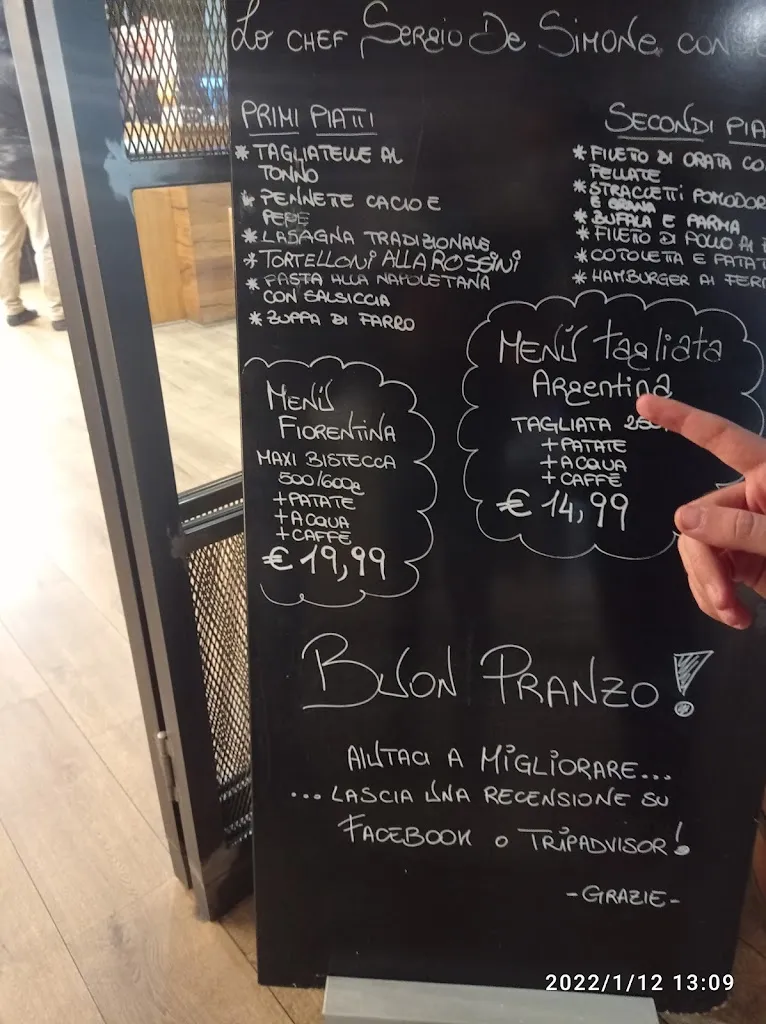 Lo CHEF SERGIO DE SIMONE
PRIMI PIATTI
* TAGLIATELLE AL
TONNO
* PENNETE CACIO E
PEPE
* LASAGNA TRADIZIONALE
* TORTELLONI ALLA ROSSINI
* PASTA ALLA NAPOLETANA
CON SALSICCIA
* ZUPPA DI FARRO
SECONDI
* FILETO DI ORATA
PELLATE
* STRACCETTI
* BUFALA E PARMA
* FILETO DI POLLO AI
* COTOLETTA E
* HAMBURGER AI
MENÙ
FIORENTINA
MAXI BISTECCA
500/600g
+PATATE
+ACQUA
+CAFFÈ
€ 19,99
MENÙ tagliata
Argentina
TAGLIATA
+PATATE
+ACQUA
+CAFFÈ
€ 14,99
BUON PRANZO!
AIUTACI A MIGLIORARE...
...LASCIA UNA RECENSIONE SU
FACEBOOK O TRIPADVISOR!
-GRAZIE-
2022/1/12 13:09